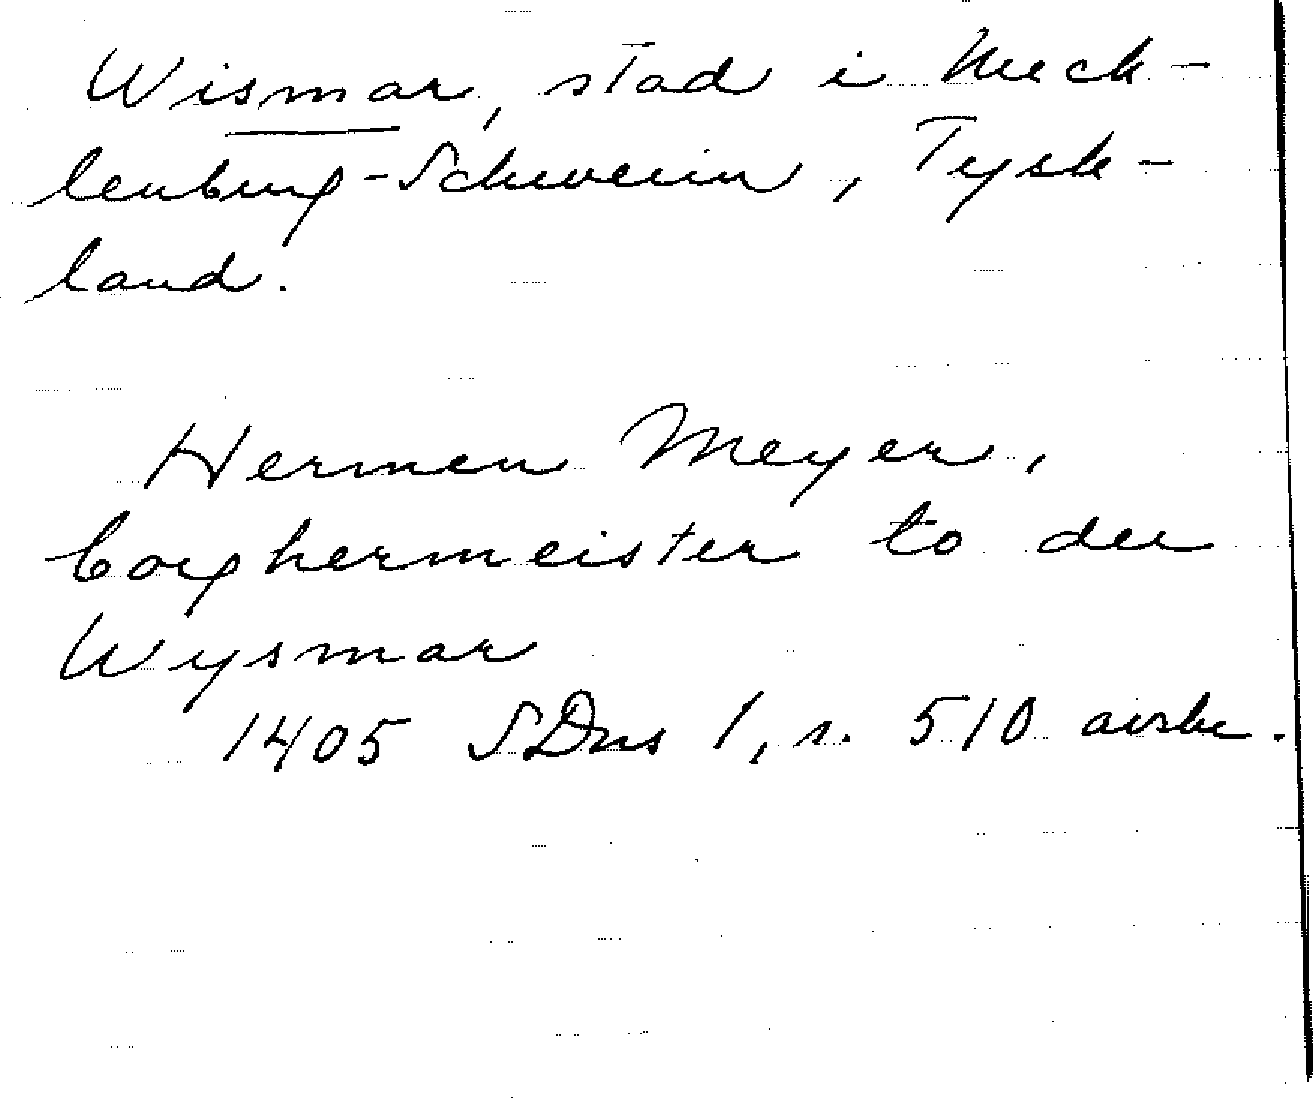 Wismar, stad i Meck-
lenburg-Schwerin, Tysk-
land.
Hermen Meyer,
borghermeister to der
Wysmar
1405 SDns 1, s. 510 avskr.